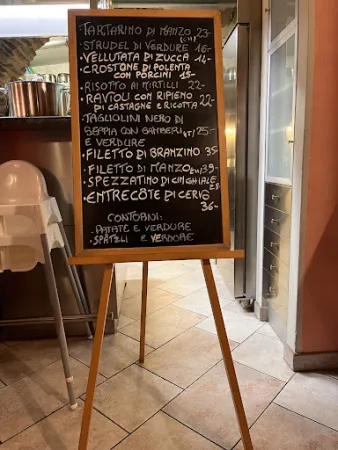 ·TARTARINO DI MANZO 23-
(CH)
·STRUDEL DI VERDURE 16-
·VELLUTATA DI ZUCCA 14-
·CROSTONE DI POLENTA
CON PORCINI 15-
·RISOTTO AI MIRTILLI 22-
·RAVIOLI CON RIPIENO
DI CASTAGNE E RICOTTA 22-
·TAGLIOLINI NERO DI
SEPPIA CON GAMBERI 25-
E VERDURE
·FILETTO DI BRANZINO 35
·FILETTO DI MANZO (CH) 39-
·SPEZZATINO DI CINGHIALE
·ENTRECÔTE DI CERVO
36-
CONTORNI:
·PATATE E VERDURE
·SPÄTZLI E VERDURE